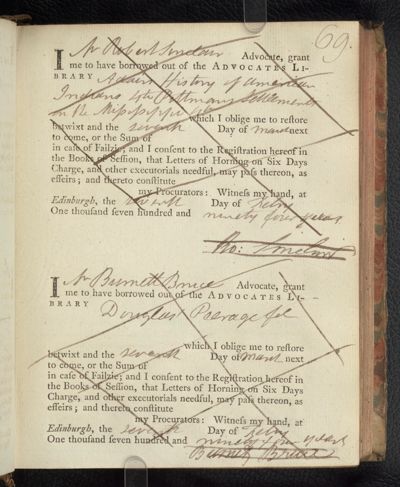 69.
I Mr Robert Sinclair Advocate, grant
me to have borrowed out of the ADVOCATES LI-
BRARY Adairs History of American
Indians 4to Pittmans Settlements
on the Mississippi 4to
which I oblige me to restore
betwixt and the seventh Day of March next
to come, or the Sum of
in case of Failzie; and I consent to the Registration hereof in
the Books of Session, that Letters of Horning on Six Days
Charge, and other executorials needful, may pass thereon, as
effeirs; and thereto constitute
my Procurators: Witness my hand, at
Edinburgh, the seventh Day of Febry
One thousand seven hundred and ninety four years
Ro: Sinclair
I Mr Burnett Bruce Advocate, grant
me to have borrowed out of the ADVOCATES LI-
BRARY
Douglas' Peerage fol
which I oblige me to restore
betwixt and the seventh Day of March next
to come, or the Sum of
in case of Failzie; and I consent to the Registration hereof in
the Books of Session, that Letters of Horning on Six Days
Charge, and other executorials needful, may pass thereon, as
effeirs; and thereto constitute
my Procurators: Witness my hand, at
Edinburgh, the seventh Day of Febry
One thousand seven hundred and ninety four years
Burnett Bruce